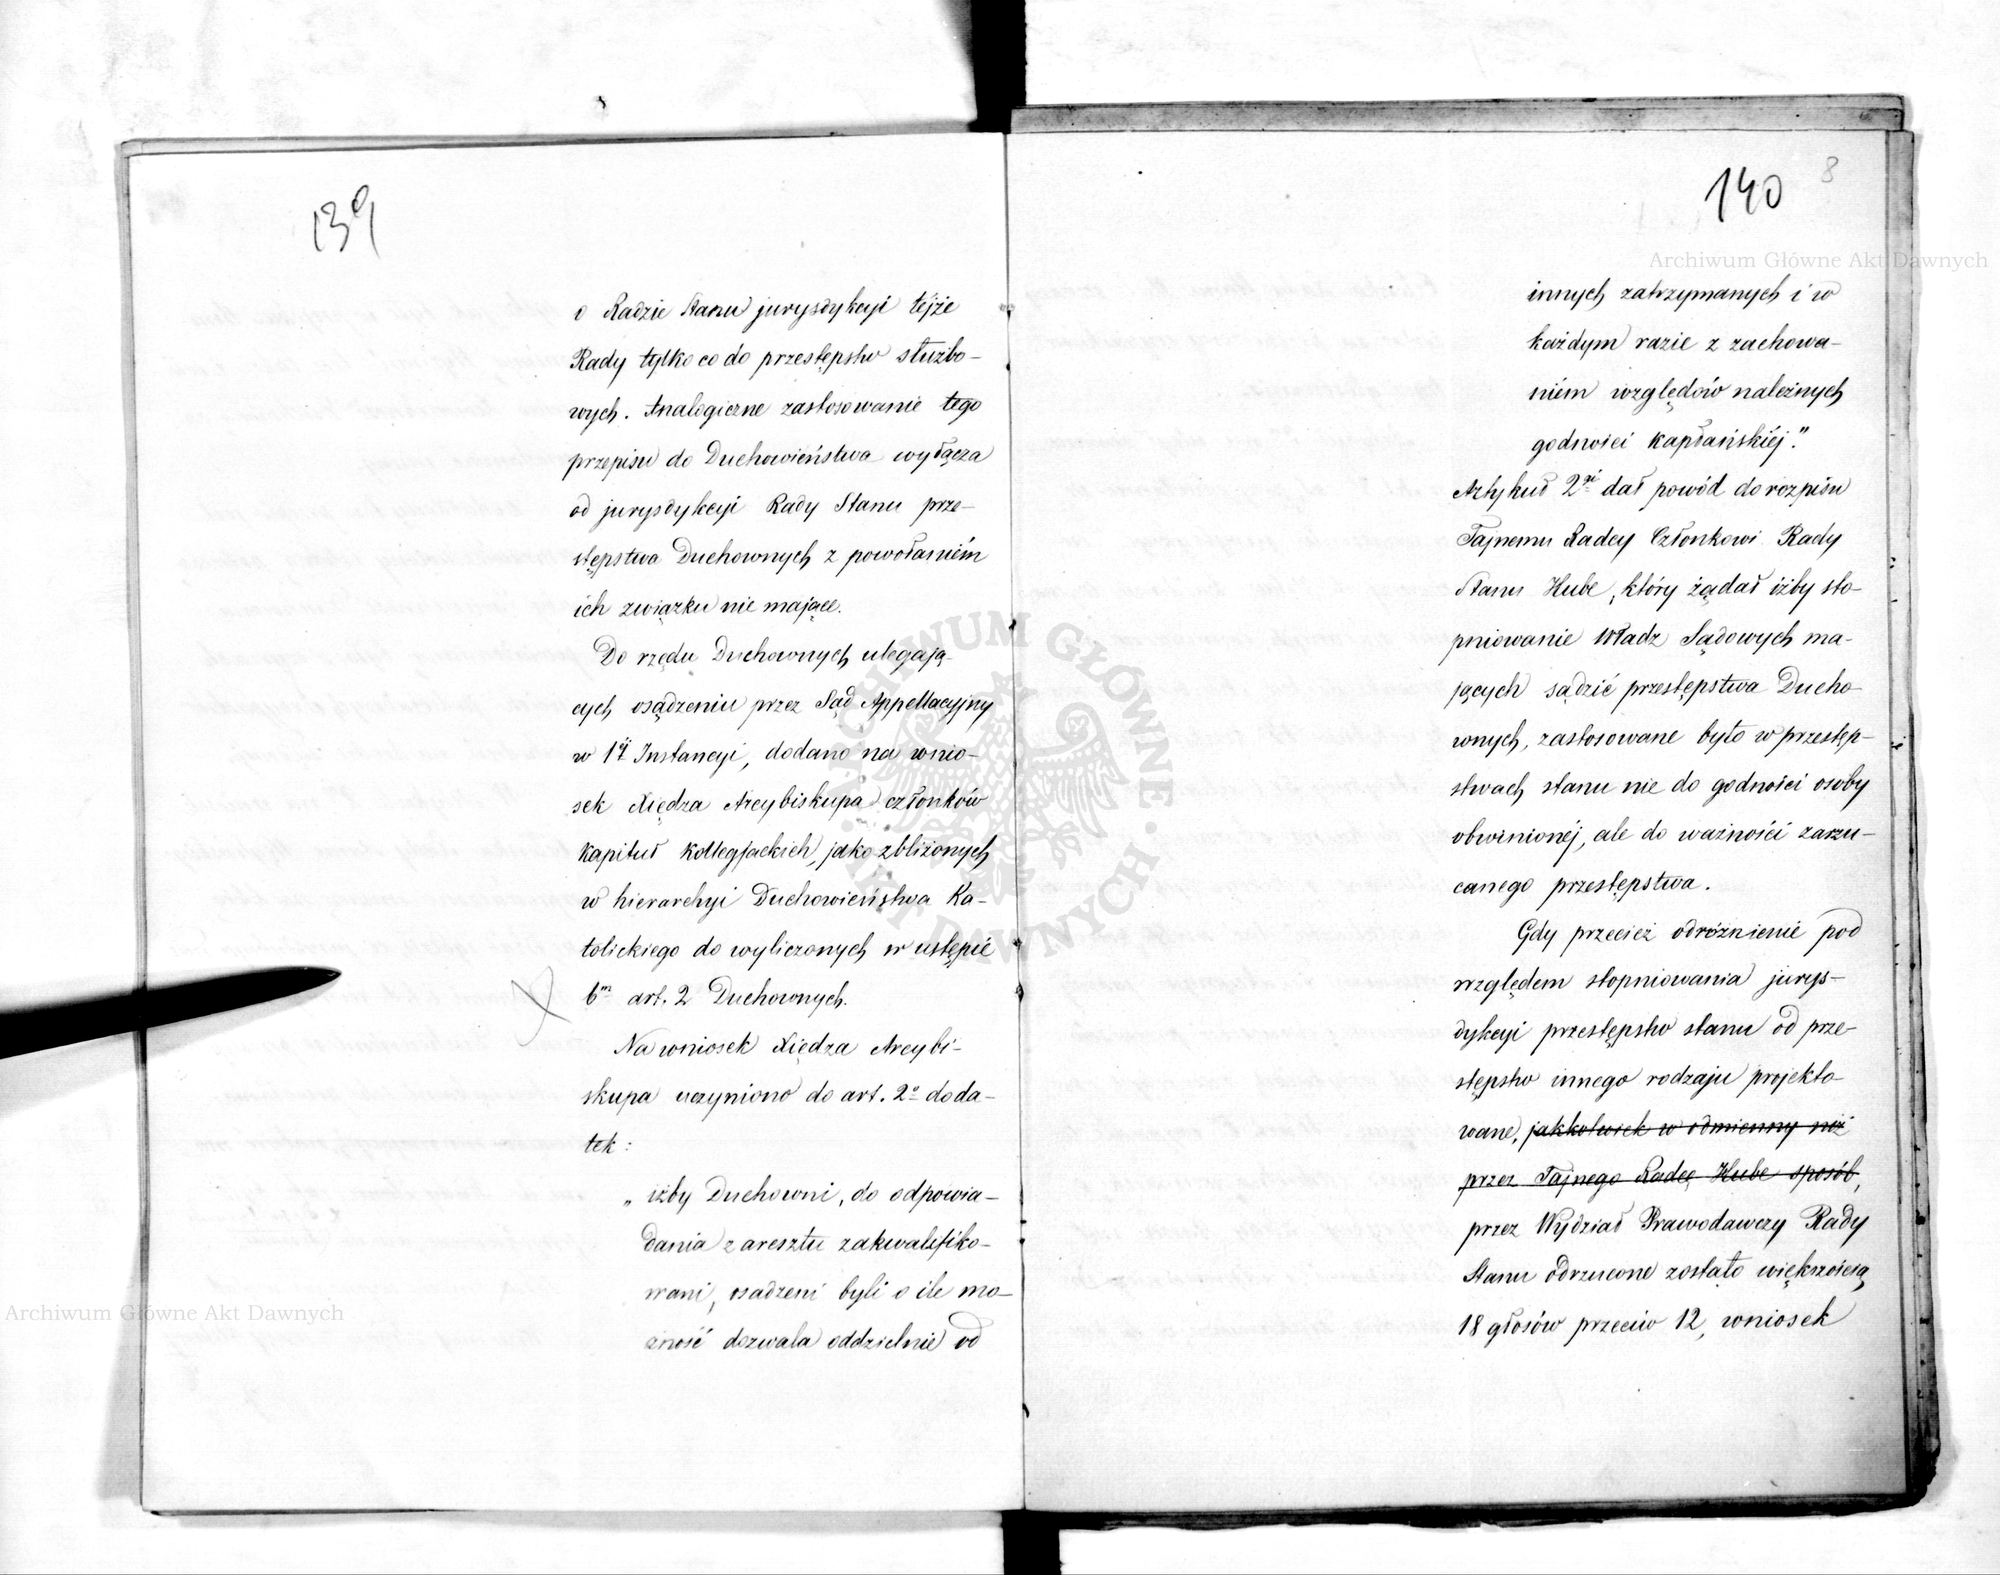 139
o Radzie Stanu jurysdykcyi tejże
Rady tylko co do przestępstw służbo-
wych. Analogiczne zastosowanie tego
przepisu do Duchowieństwa wyłącza
od jurysdykcyi Rady Stanu prze-
stępstwa Duchownych z powołaniém
ich związku nie mające.
Do rzędu Duchownych ulegają-
cych osądzeniu przez Sąd Appellacyjny
w 1éj Instancyi, dodano na wnio-
sek Xiędza Arcybiskupa członków
kapituł kollegjackich, jako zbliżonych
w hierarchyi Duchowieństwa Ka-
tolickiego do wyliczonych w ustępie
6m art. 2 Duchownych.
Na wniosek Xiędza Arcybi-
skupa uczyniono do art. 2o doda-
tek:
„ iżby Duchowni, do odpowia-
dania z aresztu zakwalifiko-
wani, osadzeni byli o ile mo-
żność dozwala oddzielnie od
140
8
innych zatrzymanych i w
każdym razie z zachowa-
niém względów należnych
godności kapłańskiéj."
Artykuł 2gi dał powód do rozpisu
Tajnemu Radcy Członkowi Rady
Stanu Hube, który żądał iżby sto-
pniowanie Władz Sądowych ma-
jących sądzić przestępstwa Ducho-
wnych, zastosowane było w przestęp-
stwach stanu nie do godności osoby
obwinionéj, ale do ważności zarzu-
canego przestępstwa.
Gdy przecież odróżnienie pod
względem stopniowania jurys-
dykcyi przestępstw stanu od prze-
stępstw innego rodzaju projekto-
wane, jakkolwiek w odmienny niż
przez Tajnego Radcę Hube sposób,
przez Wydział Prawodawczy Rady
Stanu odrzucone zostało większością
18 głosów przeciw 12, wniosek
Archiwum Główne Akt Dawnych
Archiwum Główne Akt Dawnych
ARCHIWUM GŁÓWNE AKT DAWNYCH